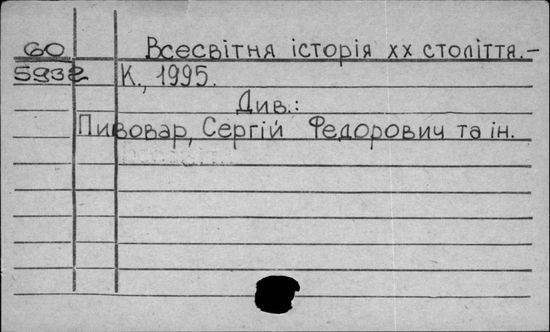 60 Всесвітня історія XX століття.–
5938 К., 1995.
Див.:
Пивовар, Сергій Федорович та ін.